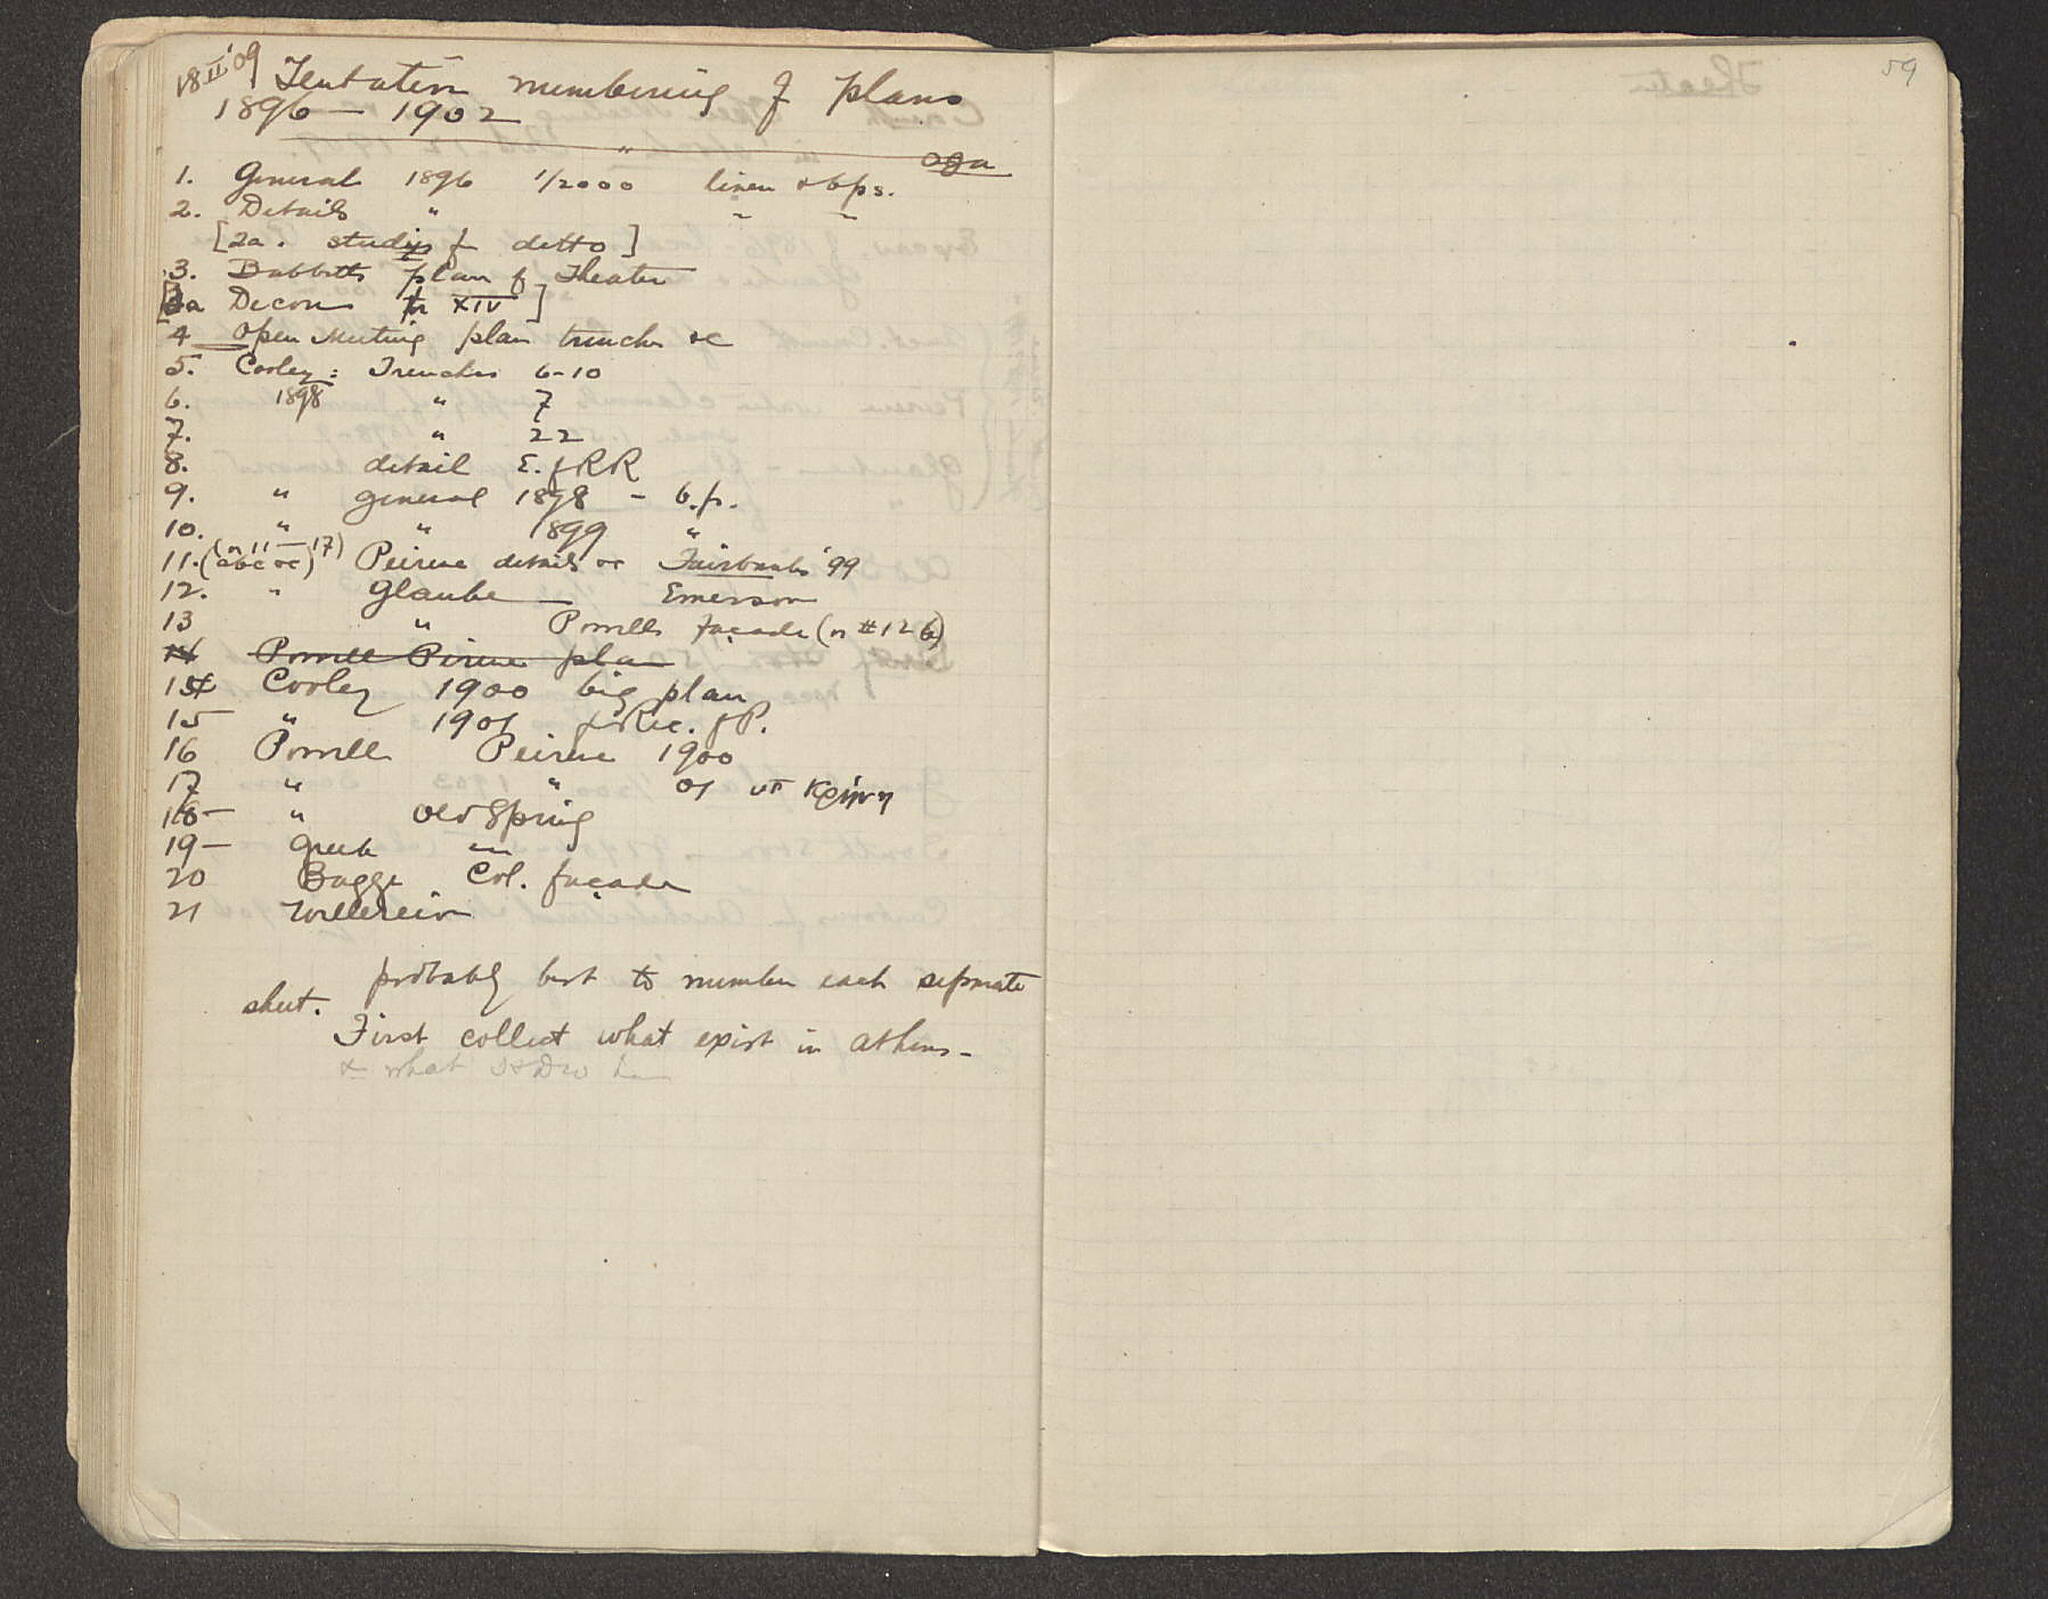 18 II '09 Tentative numbering of plans
1896 – 1902
1. General 1896 1/2000 linen & bps.
2. Details " " "
[2a. studies for ditto]
3. Babbitts plan of Theater
[3a XIV]
4 Open Meeting plan trenches &c
5. Cooley: Trenches 6-10
6. 1898 " 7
7. " 22
8. detail E. of RR
9. " general 1898 – b.p.
10. " " 1899 "
11. (abc &c) (or 11–17) Peirene details &c Fairbanks '99
12. " Glauke – Emerson
13 " Powells façade (or #12 b)
14 Powell Pirene plan
14 Cooley 1900 big plan
15 " 1901 for Rec. of P.
16 Powell Peirene 1900
17 " " 01
18 – " Old Spring
19 – Greek "
20 Bagge Col. façade
21
probably best to number each separate
sheet.
First collect what exist in Athens –
& what
59